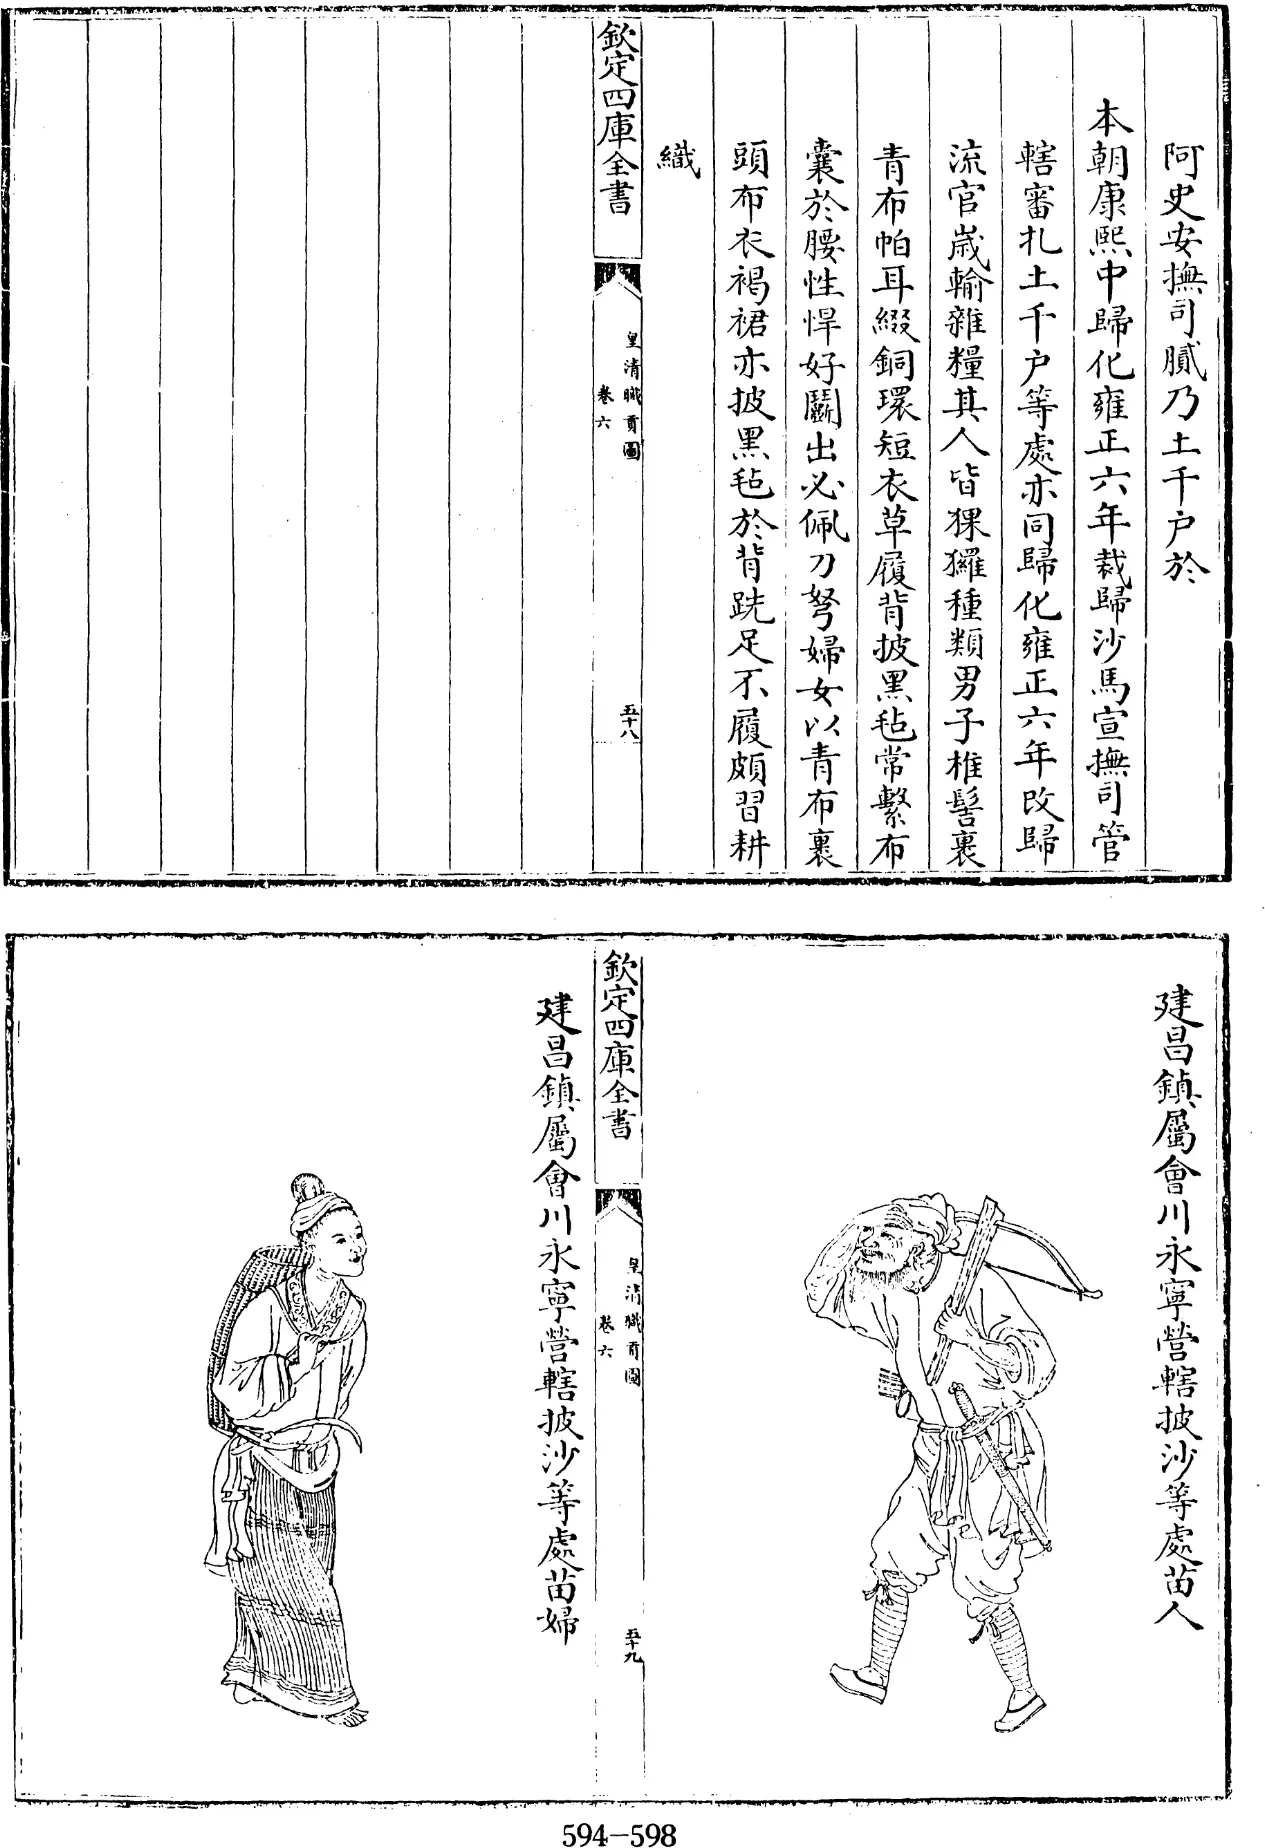 阿史安撫司膩乃土千户於
本朝康熙中歸化雍正六年裁歸沙馬宣撫司管
轄審扎土千户等處亦同歸化雍正六年改歸
流官嵗輸雜糧其人皆猓玀種類男子椎髻裹
青布帕耳綴銅環短衣草履背披黑毡常繫布
囊於腰性悍好鬭出必佩刀弩婦女以青布裹
頭布衣褐裙亦披黑毡於背跣足不履頗習耕
織
欽定四庫全書
皇清職貢圖
卷六
五十八
建昌鎮屬會川永寧營轄披沙等處苗人
欽定四庫全書
皇清職貢圖
卷六
五十九
建昌鎮屬會川永寧營轄披沙等處苗婦
594-598